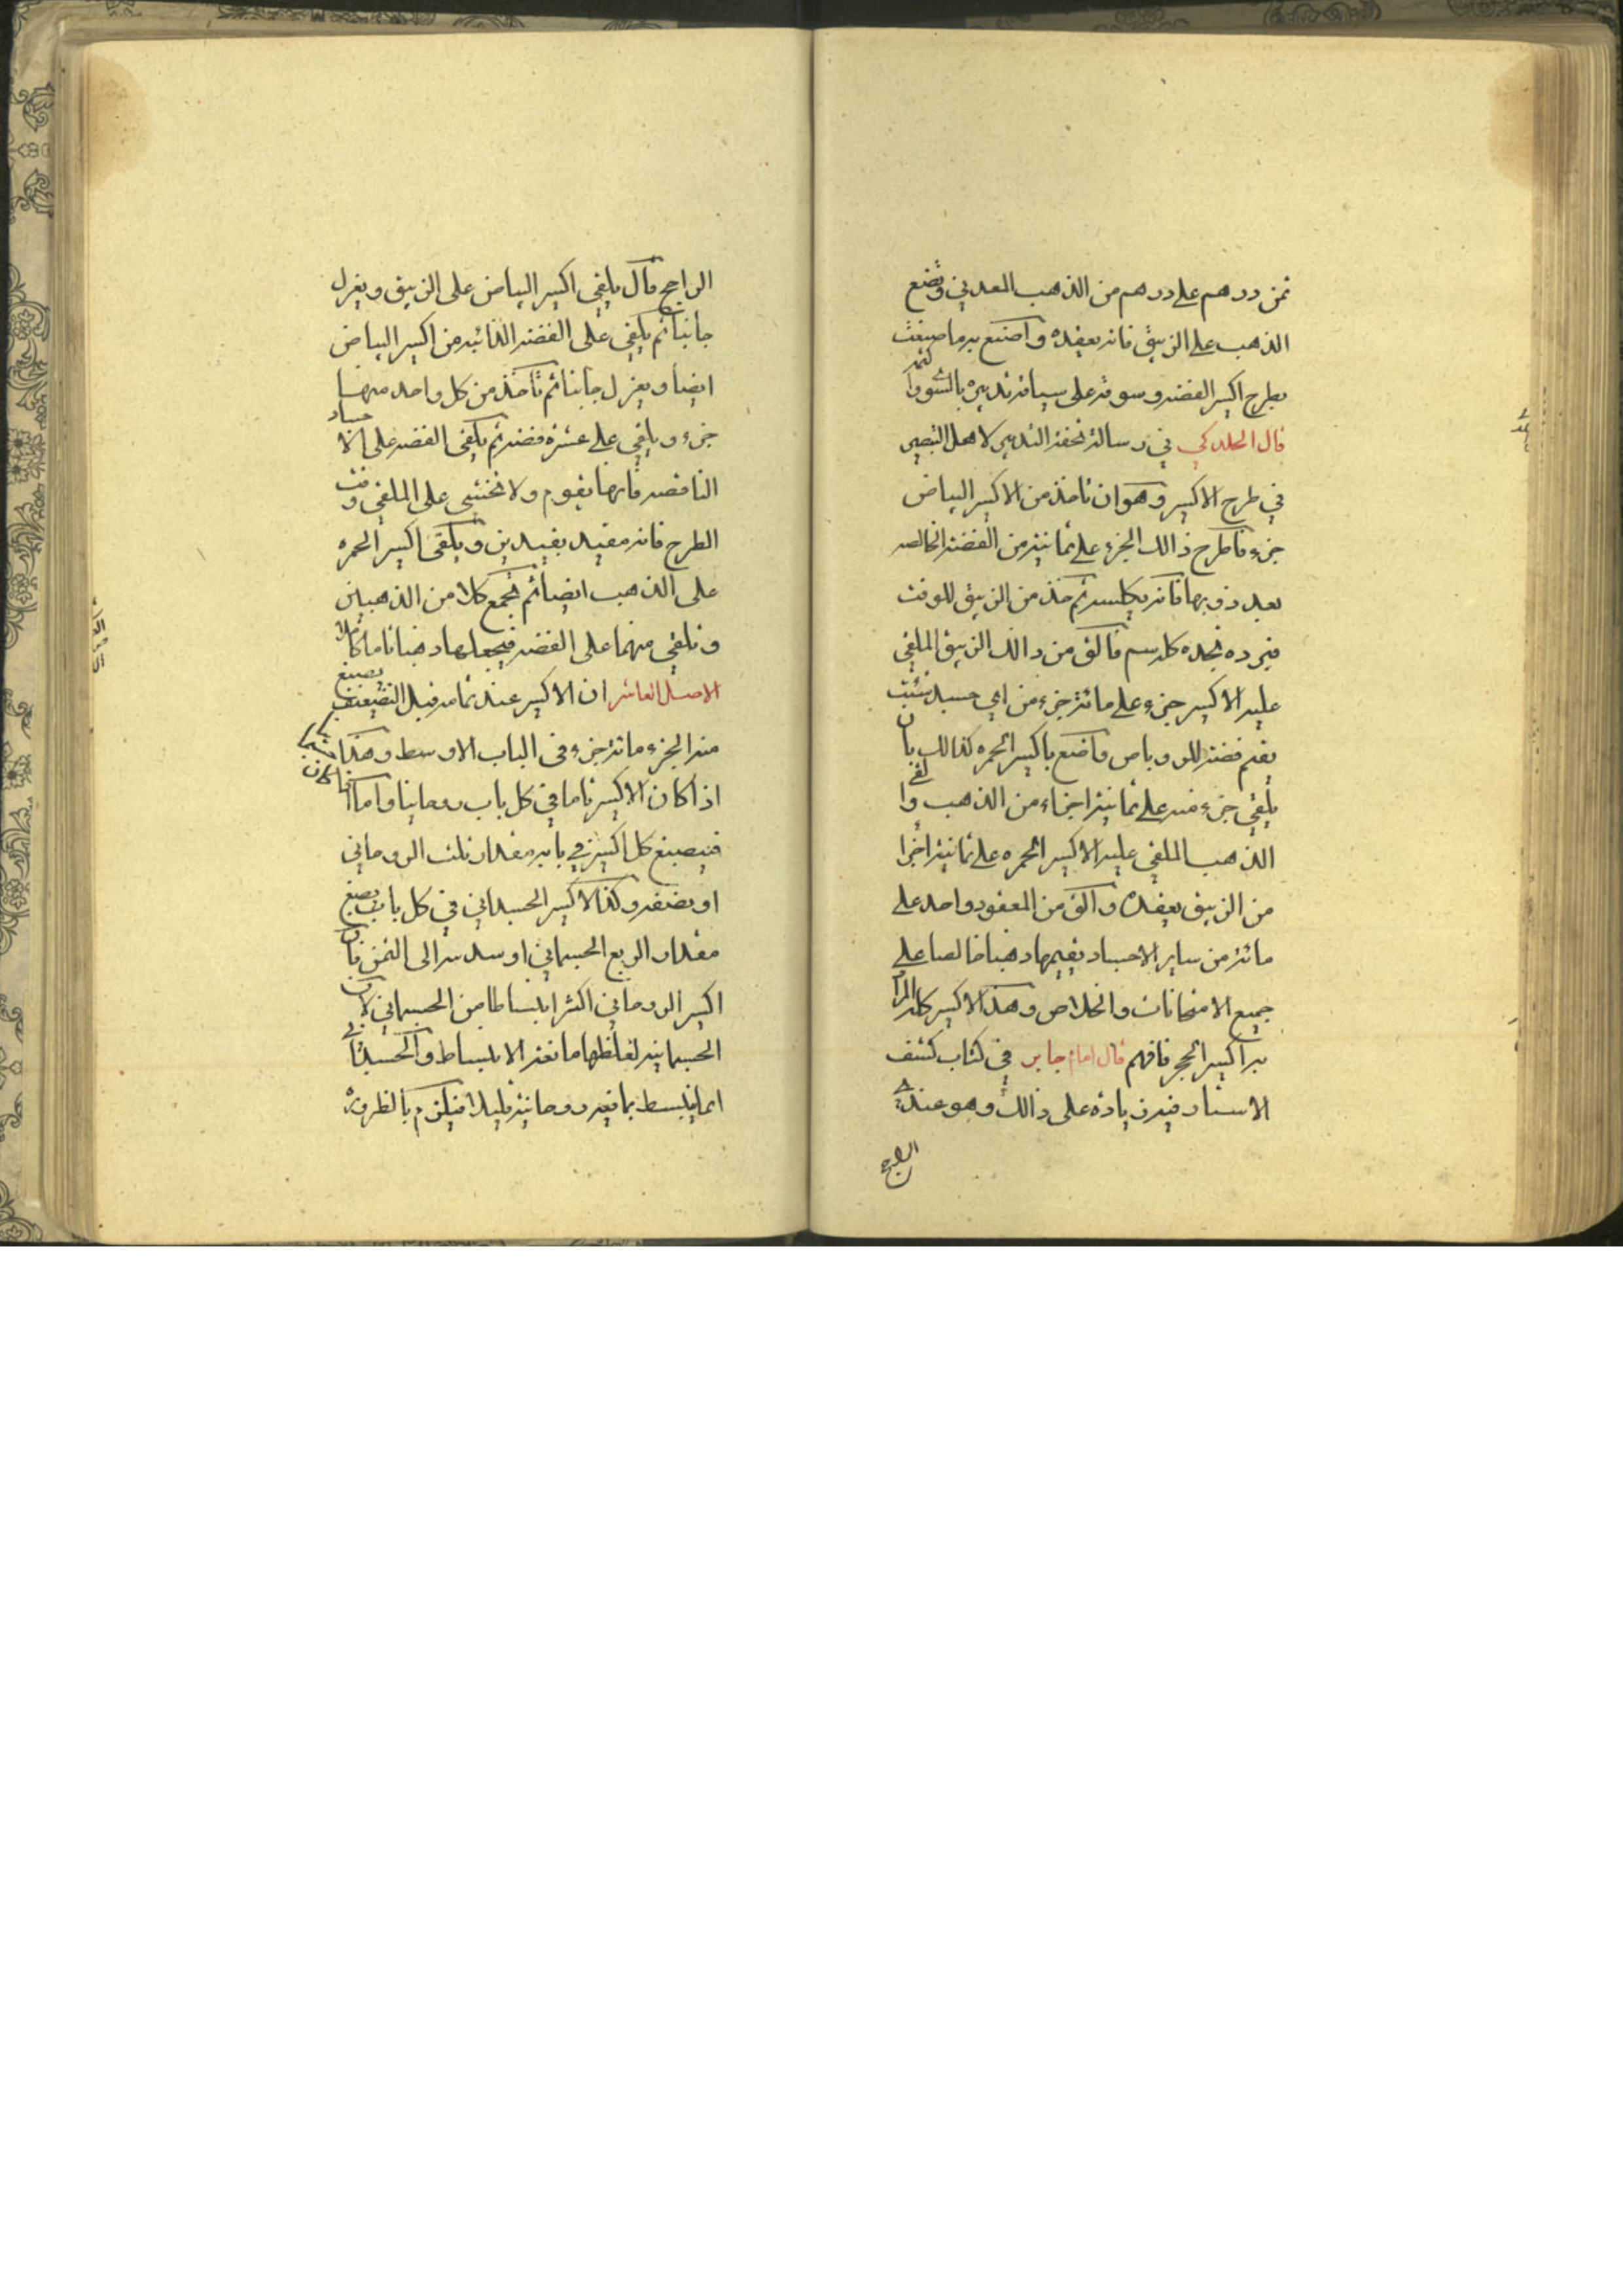 ثمن درهم على درهم من الذهب المعدني وتضع
الذهب على الزيبق فانه يعقده واصنع به ما صنعت
بطرح اكسير الفضة وسوقه على سياقة تدبيره بالسوا
قال الجلدكي في رسالة تحفة التدبير لاهل التبصير
في طرح الاكسير وهو ان تاخذ من الاكسير البياض
جزء فاطرح ذالك الجزء على ثمانية من الفضة الخالصه
بعد ذوبها فانه يكلسه ثم خذ من الزيبق للوقت
فبرده تجده كله سم فالق من ذالك الزيبق الملقي
عليه الاكسير جزء على مائة جزء من اي جسد شئت
يقم فضة للروباص واصنع باكسير الحمره كذالك بان
يلقي جزء منه على ثمانية اجزاء من الذهب والقي
الذهب الملقي عليه الاكسير الحمره على ثمانية اجزا
من الزيبق يعقده والق من المعقود واحد على
مائة من ساير الاجساد يقيمها ذهبا خالصا على
جميع الامتحانات والخلاص وهذا الاكسير كله المراد
به اكسير الحجر فافهم قال امام جابر في كتاب كشف
الاستار فيه زيادة على ذالك وهو عندي
الراجح قال يلقي اكسير البياض على الزيبق ويعزل
جانبا ثم يلقى على الفضه الذائبه من اكسير البياض
ايضا ويعزل جانبا ثم تأخذ من كل واحد منهما
جزء ويلقي على عشرة فضة ثم يلقى الفضه على الاجساد
الناقصه فانها يقوم ولا تخشى على الملقي وقت
الطرح فانه مقيد بقيدين ويلقى اكسير الحمره
على الذهب ايضا ثم تجمع كلا من الذهبين
وتلقي منهما على الفضه فيجعلها ذهبا تاما كاملا
الاصل العاشر ان الاكسير عند تمامه قبل التضعيف يصبغ
منه الجزء مائة جزء في الباب الاوسط وهذا
اذا كان الاكسير تاما في كل باب روحانيا واما
فيصبغ كل اكسير في بابه مقدار ثلث الروحاني
او نصفه وكذا الاكسير الجسداني في كل باب يصبغ
مقدار الربع الجسماني او سدسه الى الثمن فان
اكسير الروحاني اكثر انبساطا من الجسماني لان
الجسمانيه لغلظها مانعة الانبساط والجسداني
انما ينبسط بما فيه روحانية قليلا فيلزم بالظروره